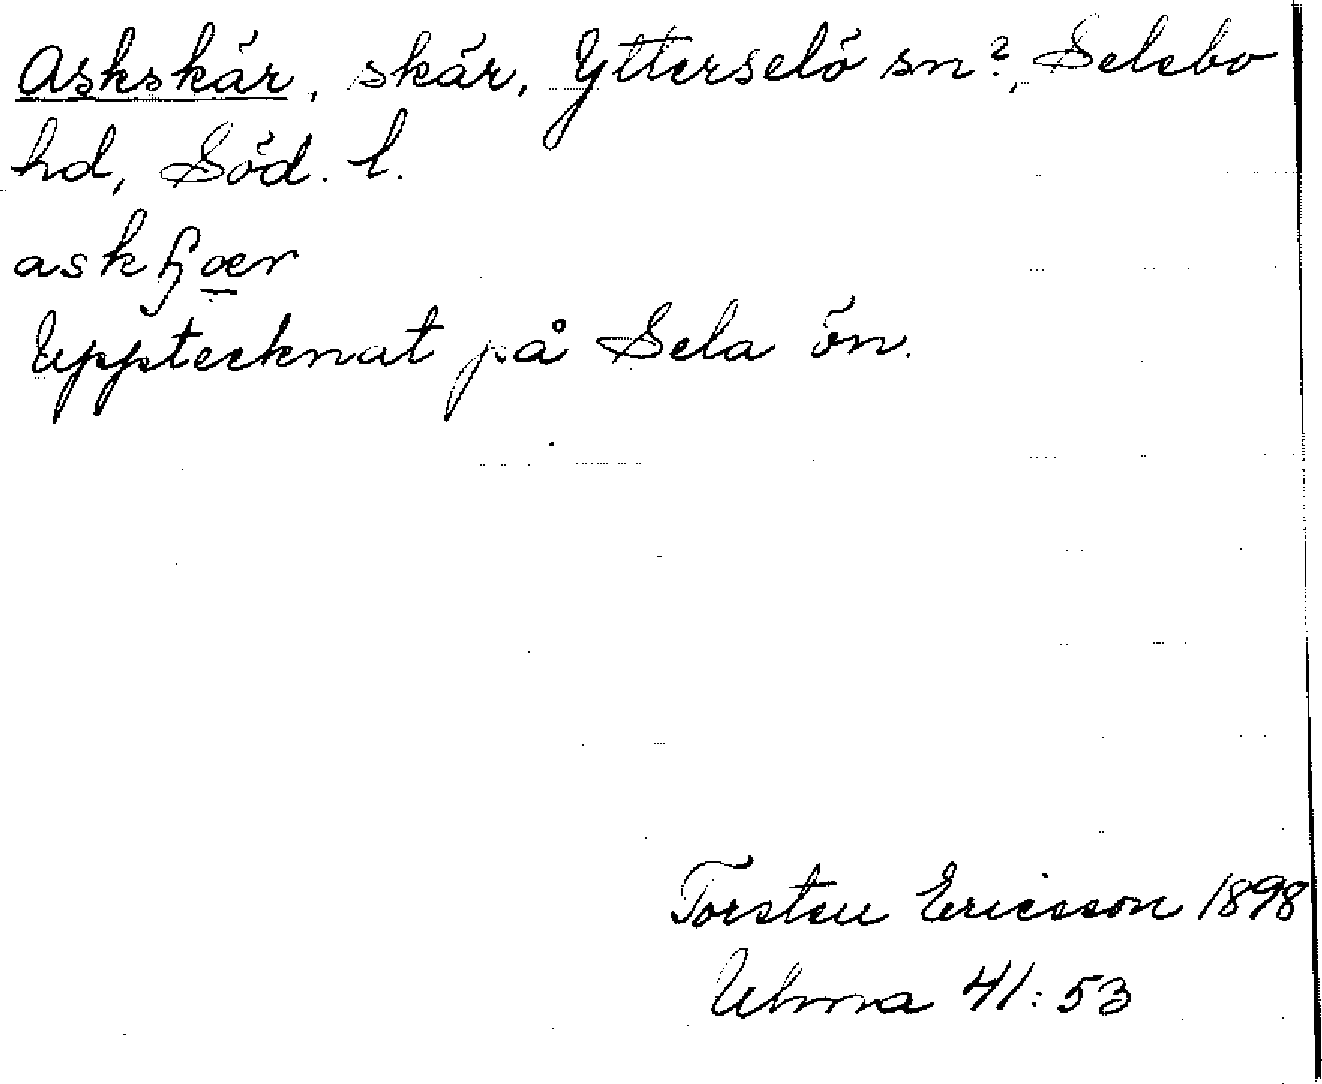 Askskär, skär, Ytterselö sn?, Selebo
hd, Söd. l.
askɧær
Upptecknat på Sela ön.
Torsten Ericsson 1898
Ulma 41:53